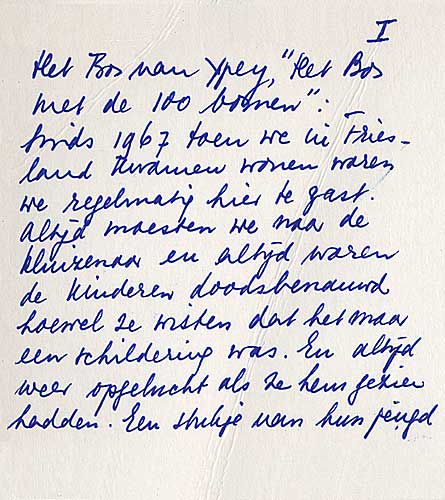 I
Het Bos van Ypey, "Het Bos
met de 100 bomen":
Sinds 1967 toen we in Fries-
land kwamen wonen waren
we regelmatig hier te gast.
Altijd moesten we naar de
kluizenaar en altijd waren
de kinderen doodsbenauwd
hoewel ze wisten dat het maar
een schildering was. En altijd
weer opgelucht als ze hem gezien
hadden. Een stukje van hun jeugd